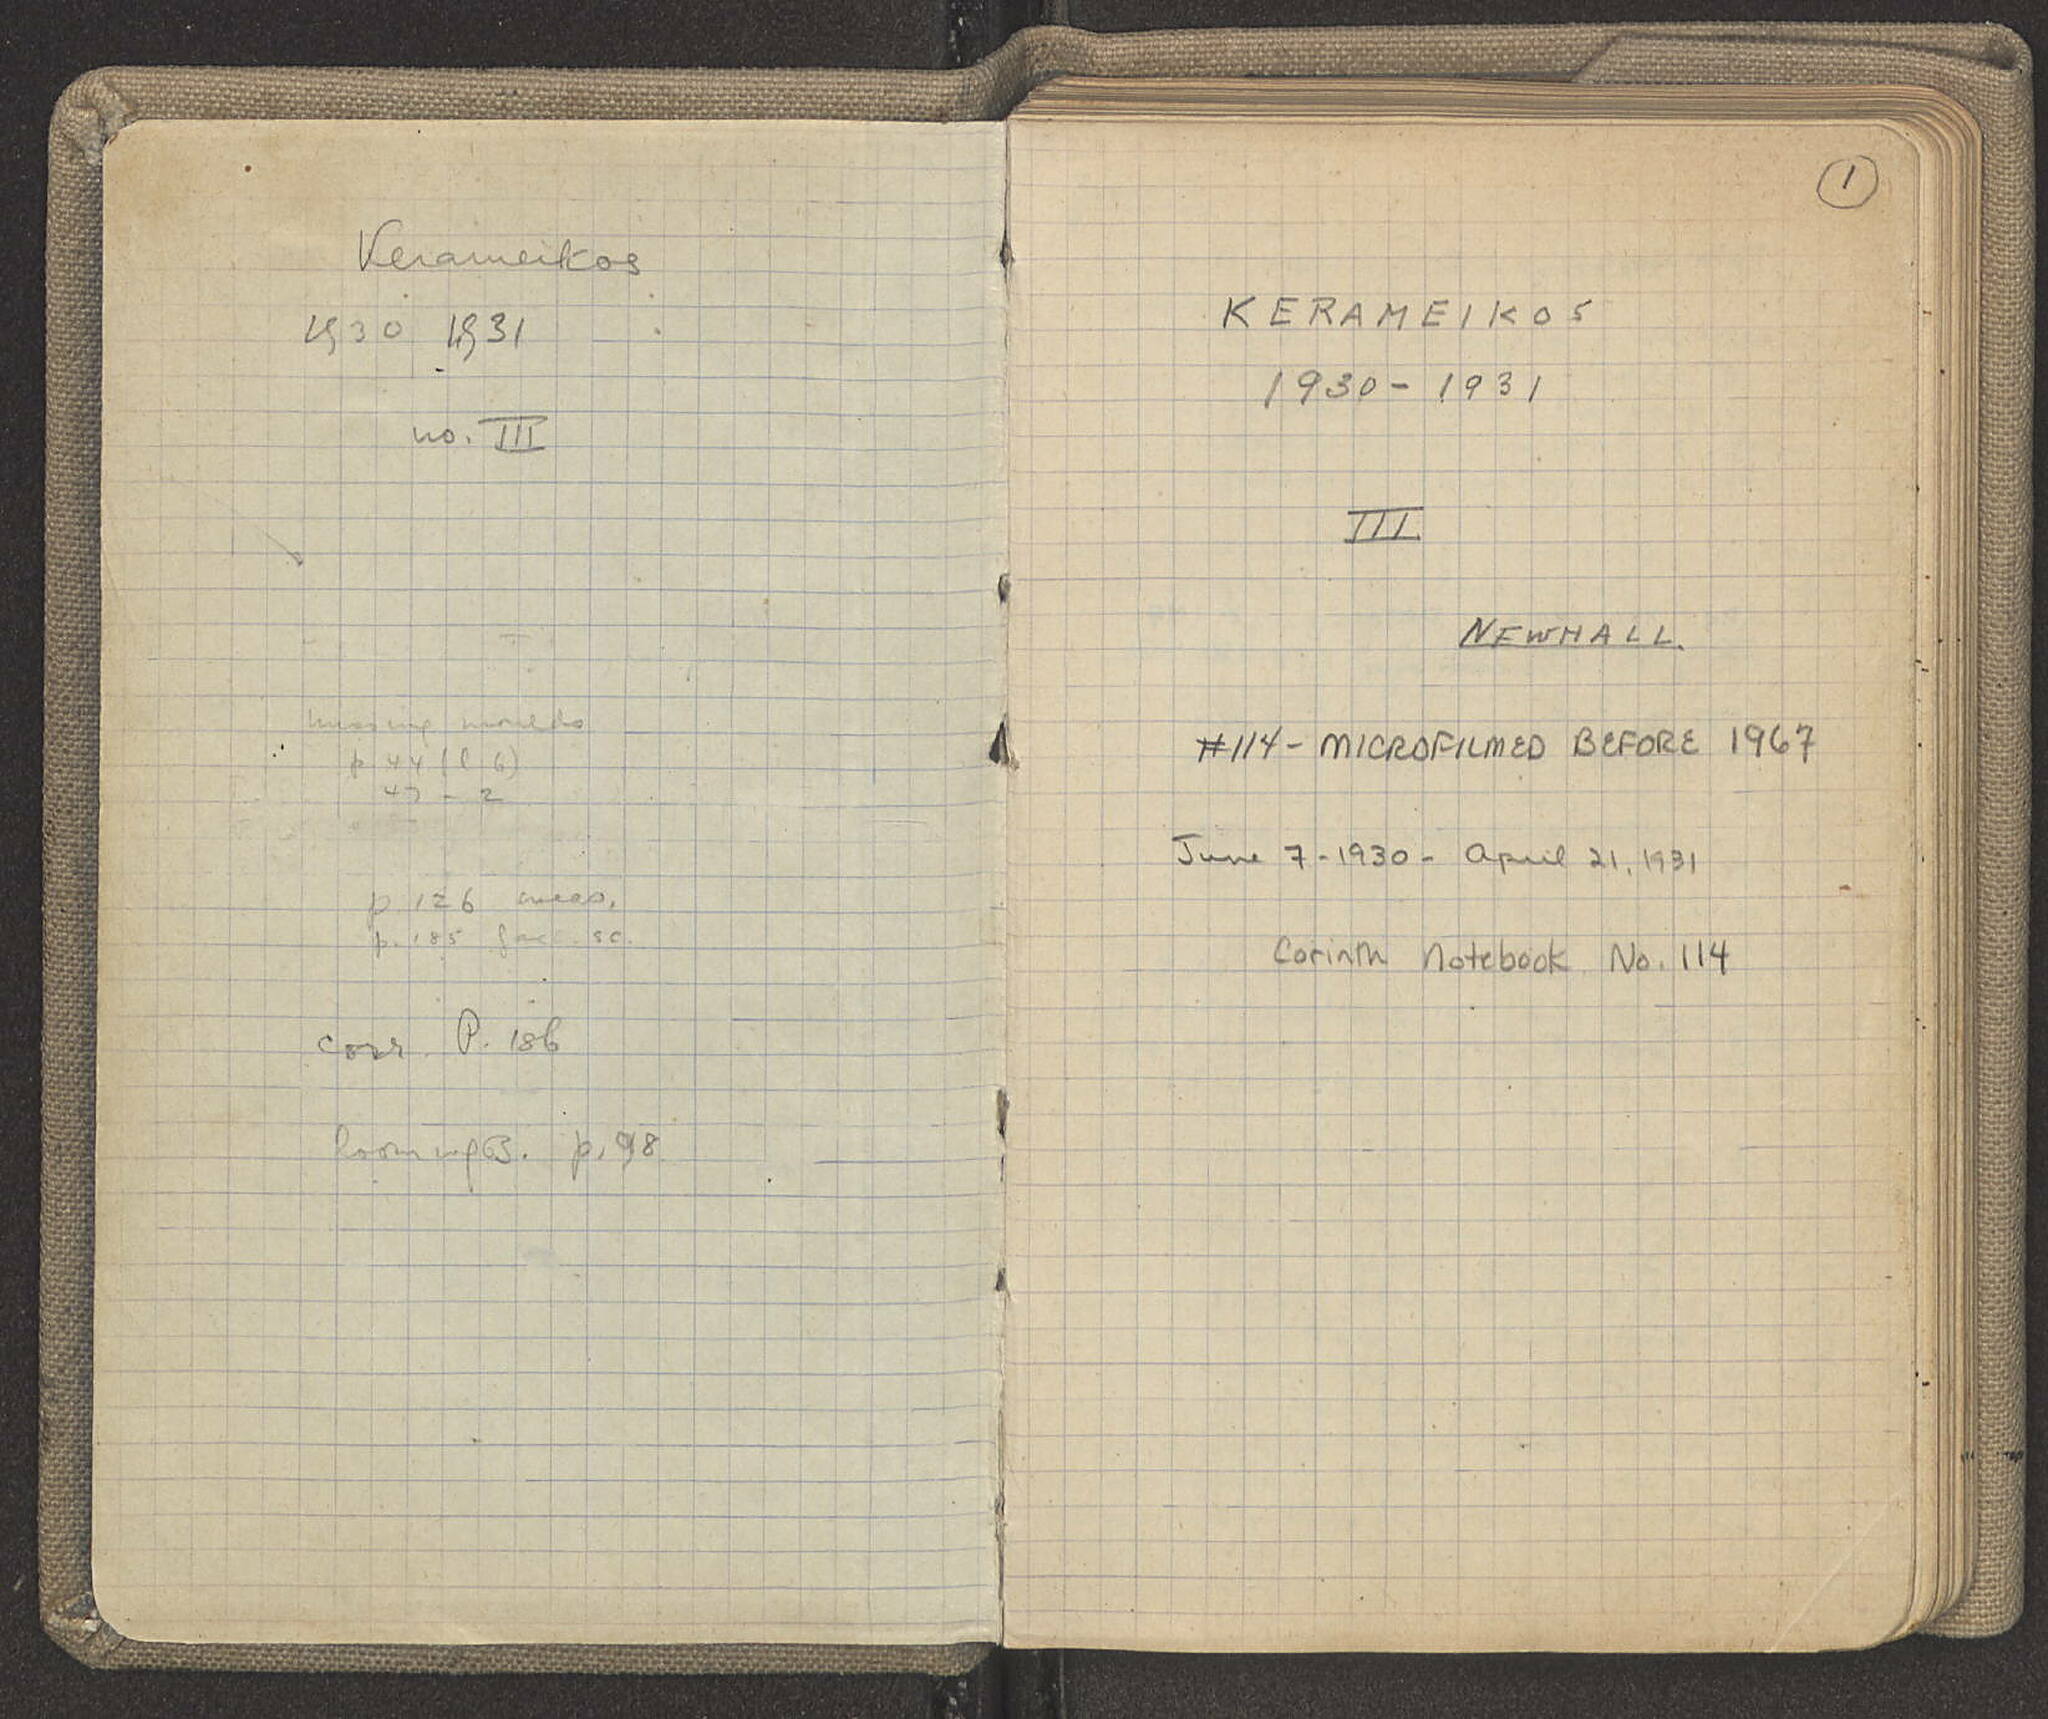 Kerameikos
1930 1931
no. III
missing moulds
p 44 (l 6)
47 - 2
p. 126 meas.
p. 185 sc.
corr. P. 186
p. 98
1
KERAMEIKOS
1930 - 1931
III
NEWHALL.
#114 - MICROFILMED BEFORE 1967
June 7 - 1930 - April 21, 1931
Corinth Notebook No. 114